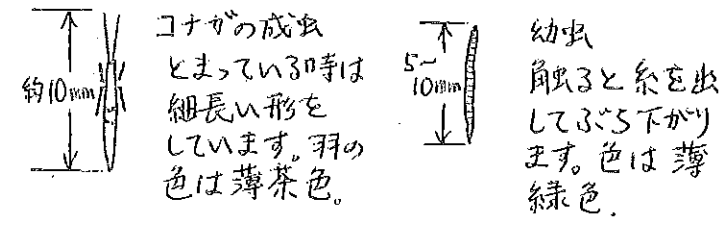 約10mm
コナガの成虫
とまっている時は
細長い形を
しています。羽の
色は薄茶色。
5〜
10mm
幼虫
触ると糸を出
してぶら下がり
ます。色は薄
緑色.